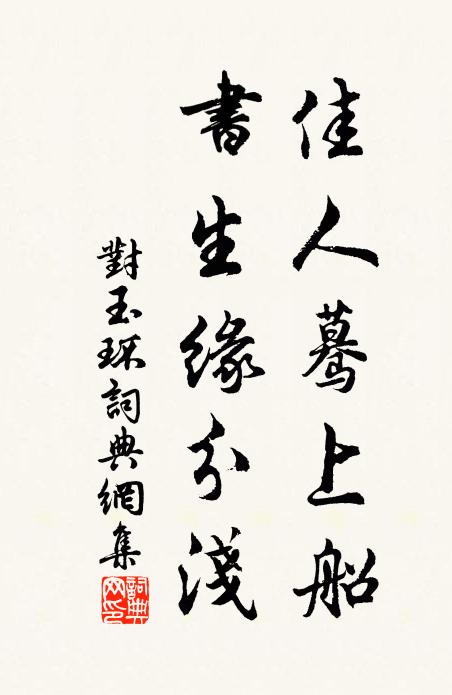 佳人驀上船
書生緣分淺
對玉環詞典網集
詞典
网印